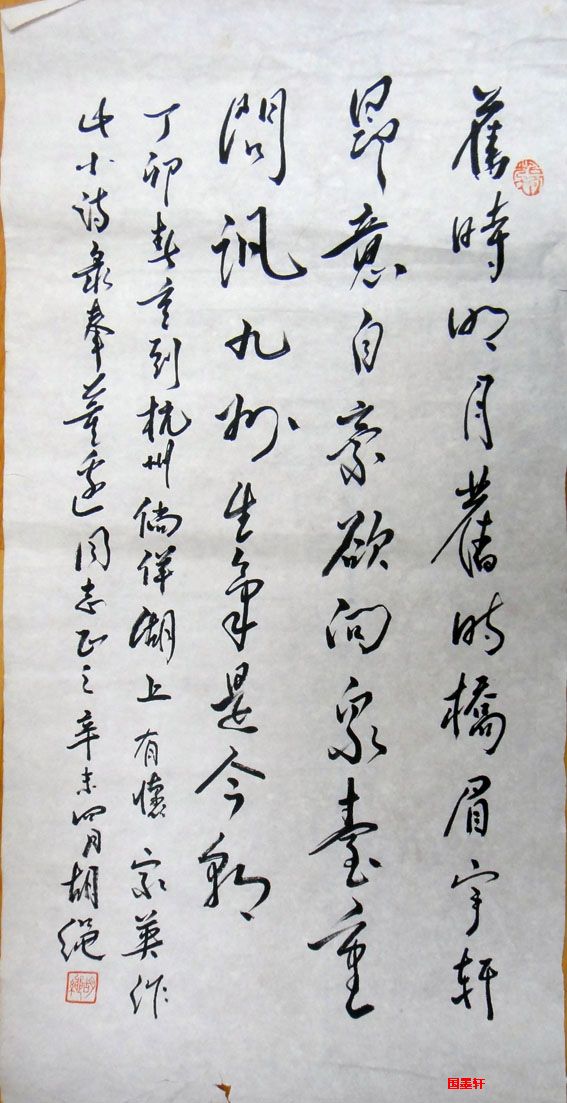 舊時明月舊時橋眉宇軒
昂意自豪欲向泉臺重
問訊九州生氣是今朝
丁卯春重到杭州倘佯湖上有懷家英作
此小詩录奉董边同志正之辛未四月胡绳
国墨轩